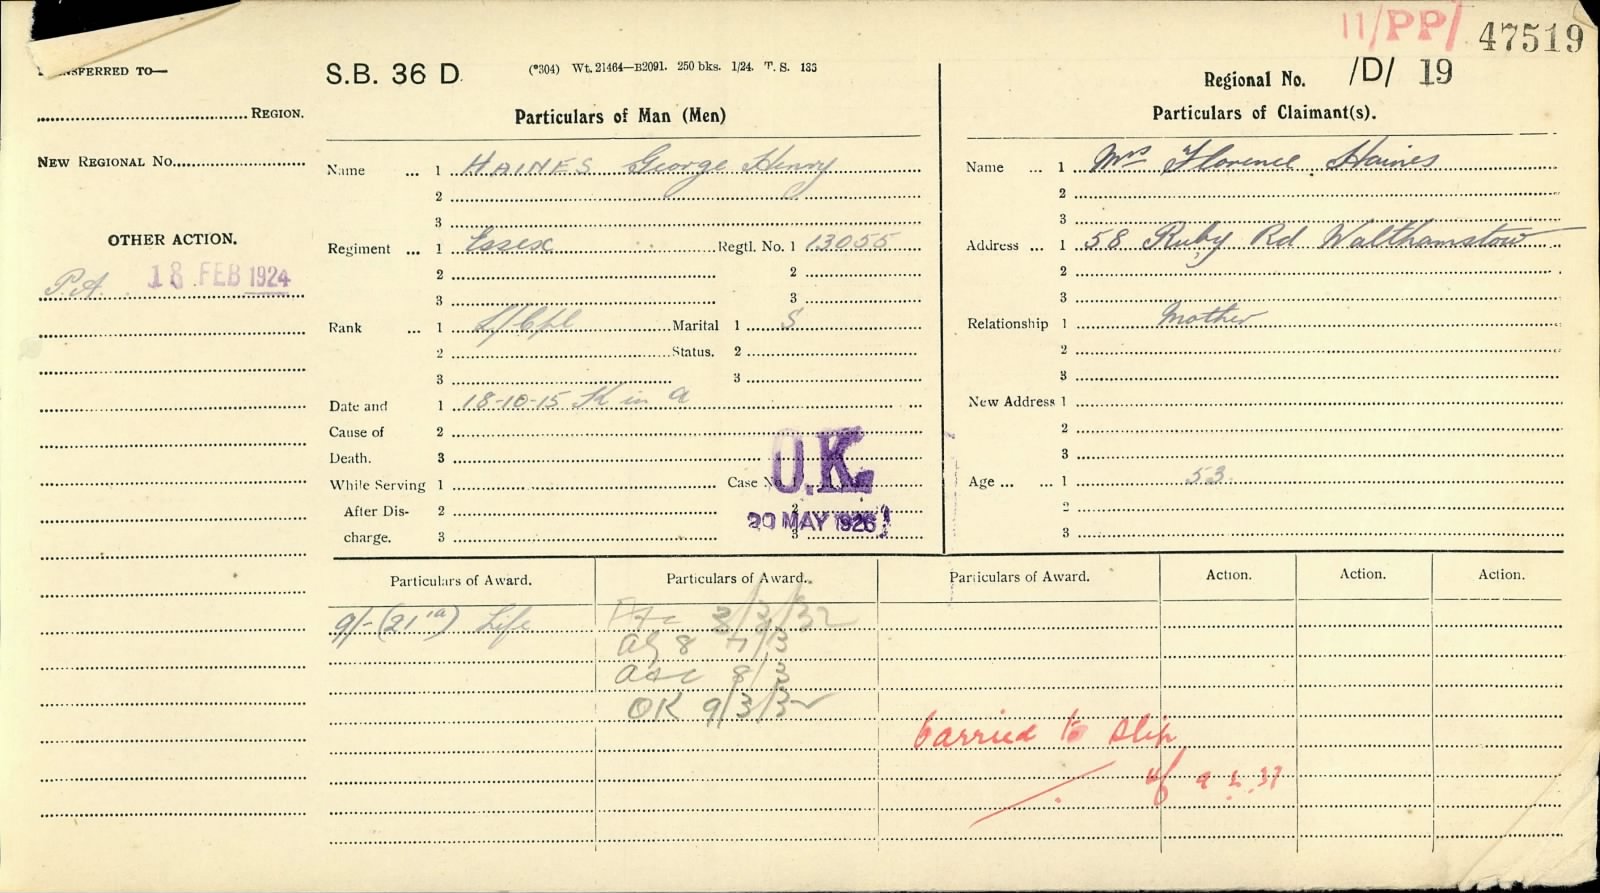 11/PP/ 47519
TRANSFERRED TO—
S.B. 36 D
(*304) Wt. 21464—B2091. 250 bks. 1/24. T. S. 133
Regional No. /D/ 19
REGION.
Particulars of Man (Men)
Particulars of Claimant(s).
NEW REGIONAL No.
Name ... 1 HAINES George Henry
2
3
Name ... 1 Mrs Florence Haines
2
3
OTHER ACTION.
P.A. 18 FEB 1924
Regiment ... 1 Essex Regtl. No. 1 13055
2 2
3 3
Address ... 1 58 Ruby Rd Walthamstow
2
3
Rank ... 1 L/Cpl Marital 1 S
2 Status. 2
3 3
Relationship 1 Mother
2
3
Date and 1 18-10-15 K in A
Cause of 2
Death. 3
New Address 1
2
3
While Serving 1 Case No. 1
After Dis- 2 2
charge. 3 3
O.K.
20 MAY 1926
Age ... ... 1 53
2
3
Particulars of Award. Particulars of Award. Particulars of Award. Action. Action. Action.
9/- (21 1a) Life
3/3/32
8 7/3
8/3
OK 9/3/32
Carried to slip
of